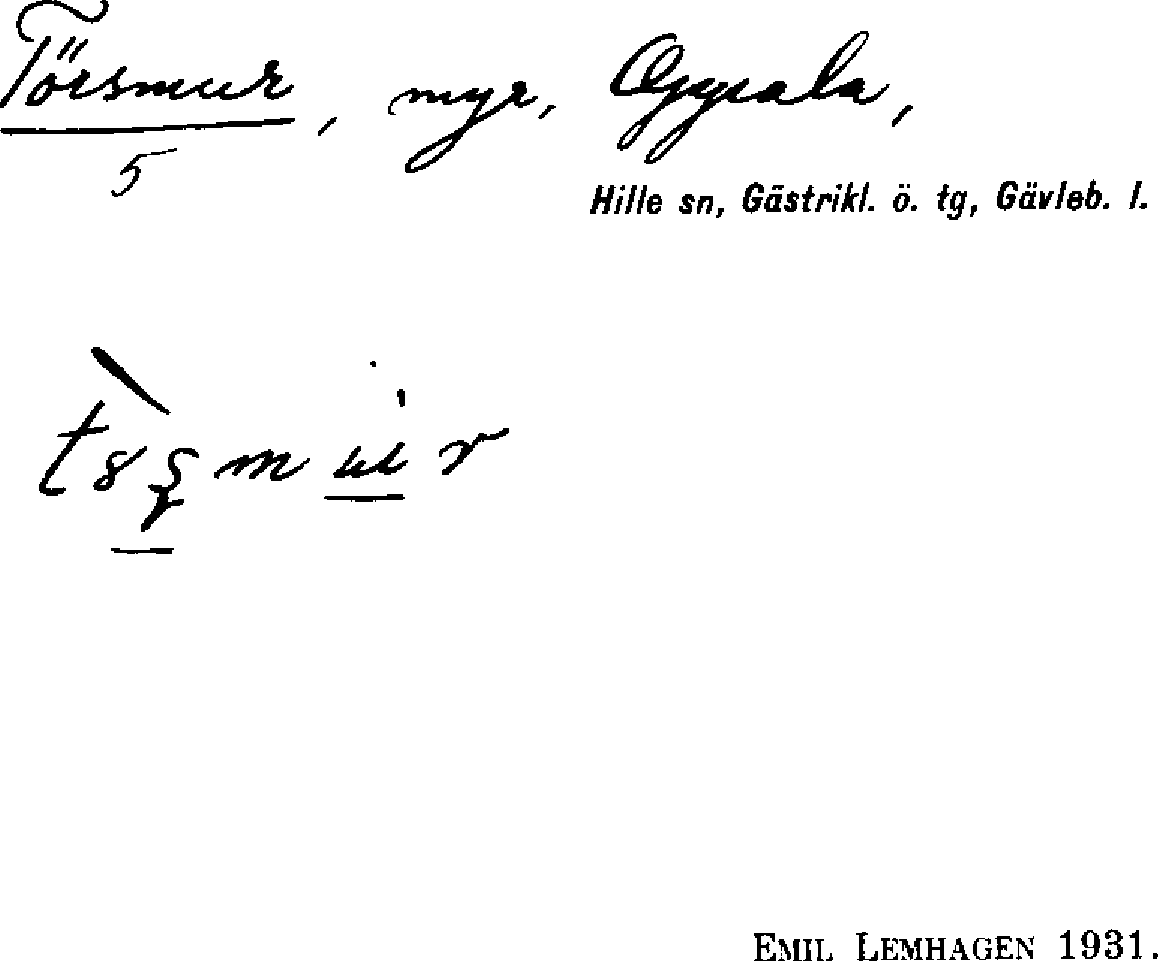 Törsmur, myr, Oppala,
5
Hille sn, Gästrikl. ö. tg, Gävleb. l.
EMIL LEMHAGEN 1931.